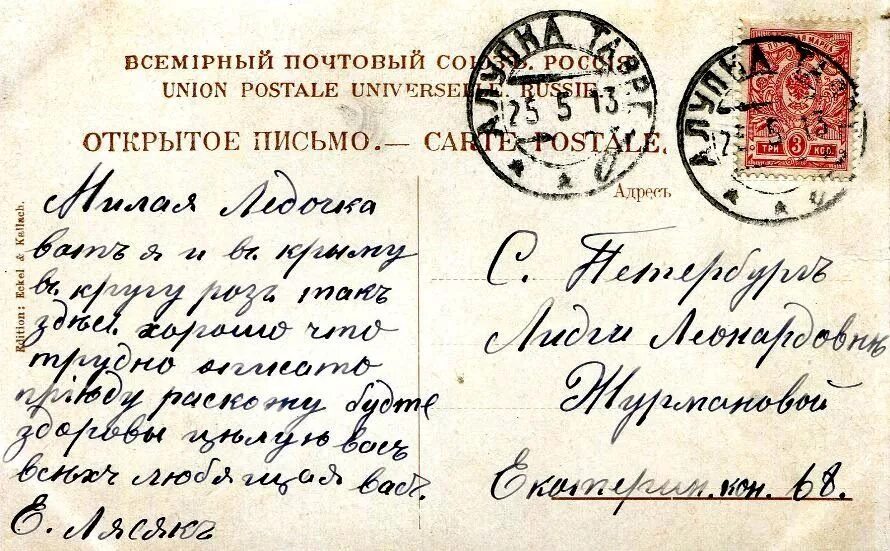 ВСЕМІРНЫЙ ПОЧТОВЫЙ СОЮЗЪ. РОССІЯ
UNION POSTALE UNIVERSELLE. RUSSIE
ОТКРЫТОЕ ПИСЬМО.— CARTE POSTALE.
АЛУПКА ТАВРГ.
25 5 13
АЛУПКА
25 5 13
ТРИ 3 КОП
Адресъ
Edition: Eckel & Kallach.
Милая Ледочка
вотъ я и въ крыму
въ кругу розъ такъ
здѣсь хорошо что
трудно описато
пріѣду раскожу будте
здоровы цѣлую васъ
всѣхъ любящая васъ.
Е. Лясякъ
С. Петербургъ
Лидги Леонардовнѣ
Журмановой
Екатерин. кан. 68.